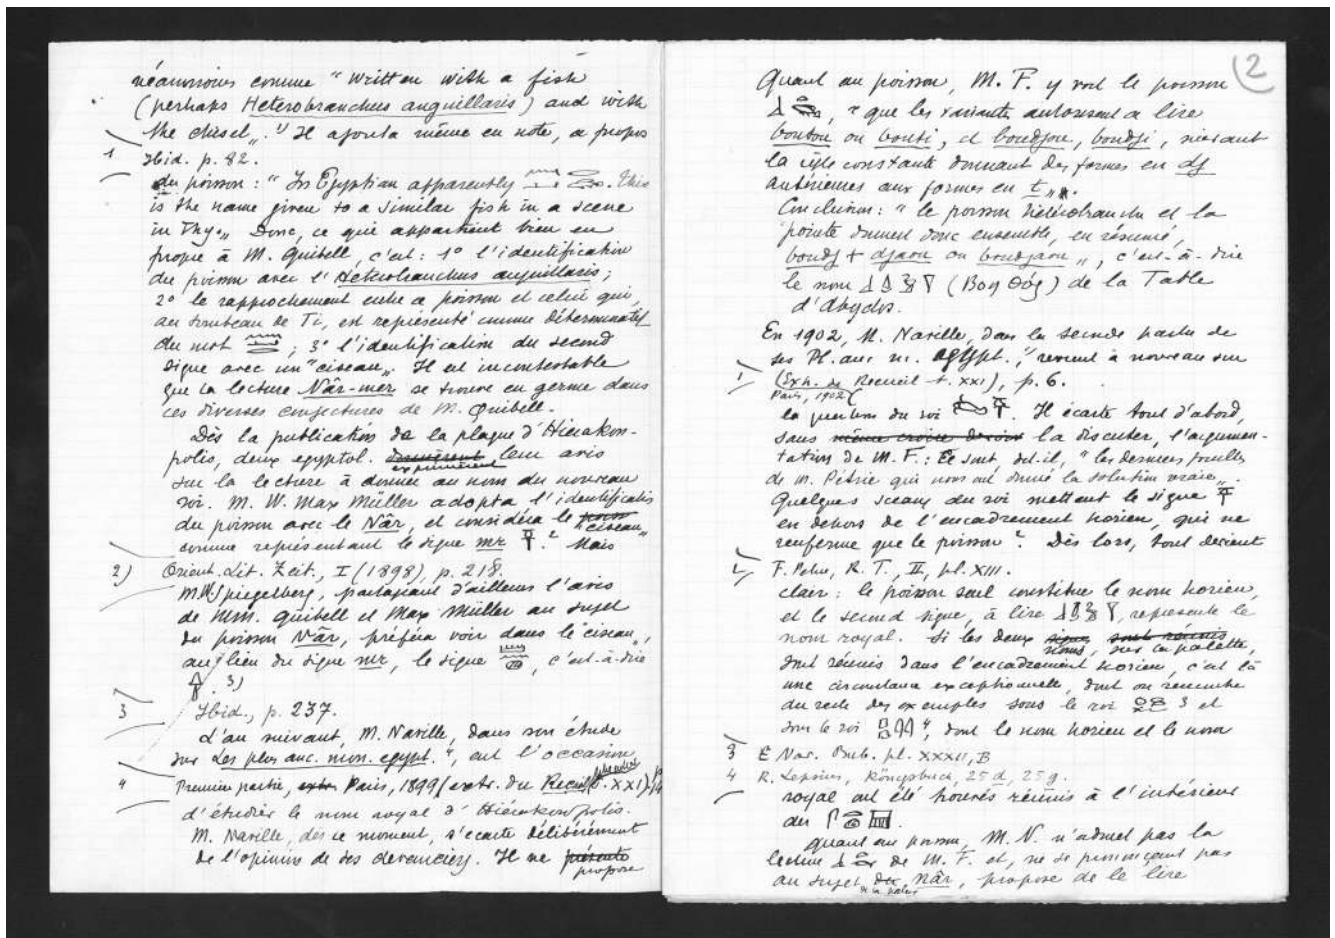 néanmoins comme "written with a fish
(perhaps Heterobranchus anguillaris) and with
the chisel„. 1) Il ajouta même en note, à propos
1 Ibid. p. 82.
du poisson: "In Egyptian apparently . This
is the name given to a similar fish in a scene
in Thy„. Donc, ce qui appartient bien en
propre à M. Quibell, c'est: 1º l'identification
du poisson avec l'Heterobranchus anguillaris;
2º le rapprochement entre ce poisson et celui qui,
au tombeau de Ti, est représenté comme déterminatif
du mot ; 3º l'identification du second
signe avec un "ciseau„. Il est incontestable
que la lecture Nâr-mer se trouve en germe dans
ces diverses conjectures de M. Quibell.
Dès la publication de la plaque d'Hiérakon-
polis, deux egyptol. donnèrent leur avis
exprimèrent
sur la lecture à donner au nom du nouveau
roi. M. W. Max Müller adopta l'identification
du poisson avec le Nâr, et considéra le "ciseau„
comme représentant le signe mr . 2 Mais
2) Orient. Lit. Zeit., I (1898), p. 218.
M. Spiegelberg, partageant d'ailleurs l'avis
de MM. Quibell et Max Müller au sujet
du poisson Nâr, préféra voir dans le "ciseau„,
au lieu du signe mr, le signe , c'est-à-dire
. 3)
3 Ibid., p. 237.
L'an suivant, M. Naville, dans son étude
sur Les plus anc. mon. egypt. 4, eut l'occasion
4 Première partie, Paris, 1899 (extr. du Recueil t. XXI)
d'étudier le nom royal d'Hiérakonpolis.
M. Naville, dès ce moment, s'écarte délibérément
de l'opinion de ses devanciers. Il ne présente
propose
2
Quant au poisson, M. F. y voit le poisson
, "que les variantes autorisent à lire
boutou ou bouti, et boudjou, boudji, suivant
la règle constante donnant des formes en dj
antérieures aux formes en t„.
Conclusion: "le poisson hétérobranche et la
pointe donnent donc ensemble, en résumé,
boudj + djaou ou boudjaou„, c'est-à-dire
le nom (Βοηθός) de la Table
d'Abydos.
En 1902, M. Naville, dans la seconde partie de
ses Pl. anc. m. égypt. 1, revient à nouveau sur
1 (Extr. du Recueil t. XXI), p. 6.
Paris, 1902
la question du roi . Il écarte tout d'abord,
sans même croire devoir la discuter, l'argumen-
tation de M. F.: Ce sont, dit-il, "les dernières fouilles
de M. Pétrie qui nous ont donné la solution vraie„.
Quelques sceaux du roi mettent le signe
en dehors de l'encadrement horien, qui ne
renferme que le poisson 2. Dès lors, tout devient
2 F. Petrie, R. T., II, pl. XIII.
clair: le poisson seul constitue le nom horien,
et le second signe, à lire , représente le
nom royal. Si les deux signes, sont réunis
noms, sur la palette,
sont réunis dans l'encadrement horien, c'est là
une circonstance exceptionnelle, dont on rencontre
du reste des exemples sous le roi 3 et
sous le roi 4, dont le nom horien et le nom
3 E Nav. Bub. pl. XXXII, B
4 R. Lepsius, Königsbuch, 25 d, 25 g.
royal ont été trouvés réunis à l'intérieur
du .
Quant au poisson, M. N. n'admet pas la
lecture de M. F. et, ne se prononçant pas
au sujet du Nâr, propose de le lire
de la valeur